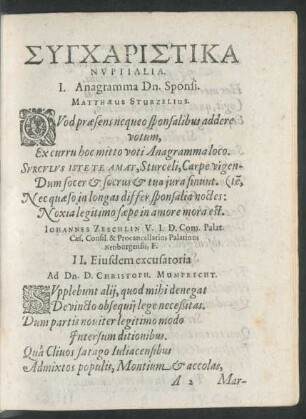 ΣΥΓΧΑΡΙΣΤΙΚΑ
NVPTIALIA.
I. Anagramma Dn. Sponsi.
MATTHÆUS STURZELIUS.
QVod præsens nequeo sponsalibus addere
votum,
Ex curru hoc mitto voti Anagramma loco.
SURCVLVS ISTE TE AMAT, Sturceli, Carpe vigen-
Dum socer & socrus & tua jura sinunt. (tē,
Nec quæso in longas differ sponsalia noctes:
Noxia legitimo sæpe in amore mora est.
IOHANNES ZESCHLIN V. I. D. Com. Palat.
Cæs. Consil. & Procancellarius Palatinus
Neoburgensis, F.
II. Eiusdem excusatoria
Ad Dn. D. CHRISTOPH. MUMPRECHT.
SVpplebunt alij, quod mihi denegat
Devincto obsequij lege necessitas.
Dum partis noviter legitimo modo
Intersum ditionibus.
Quâ Clivos satago Iuliacensibus
Admixtos populis, Montium & accolas,
A 2 Mar-